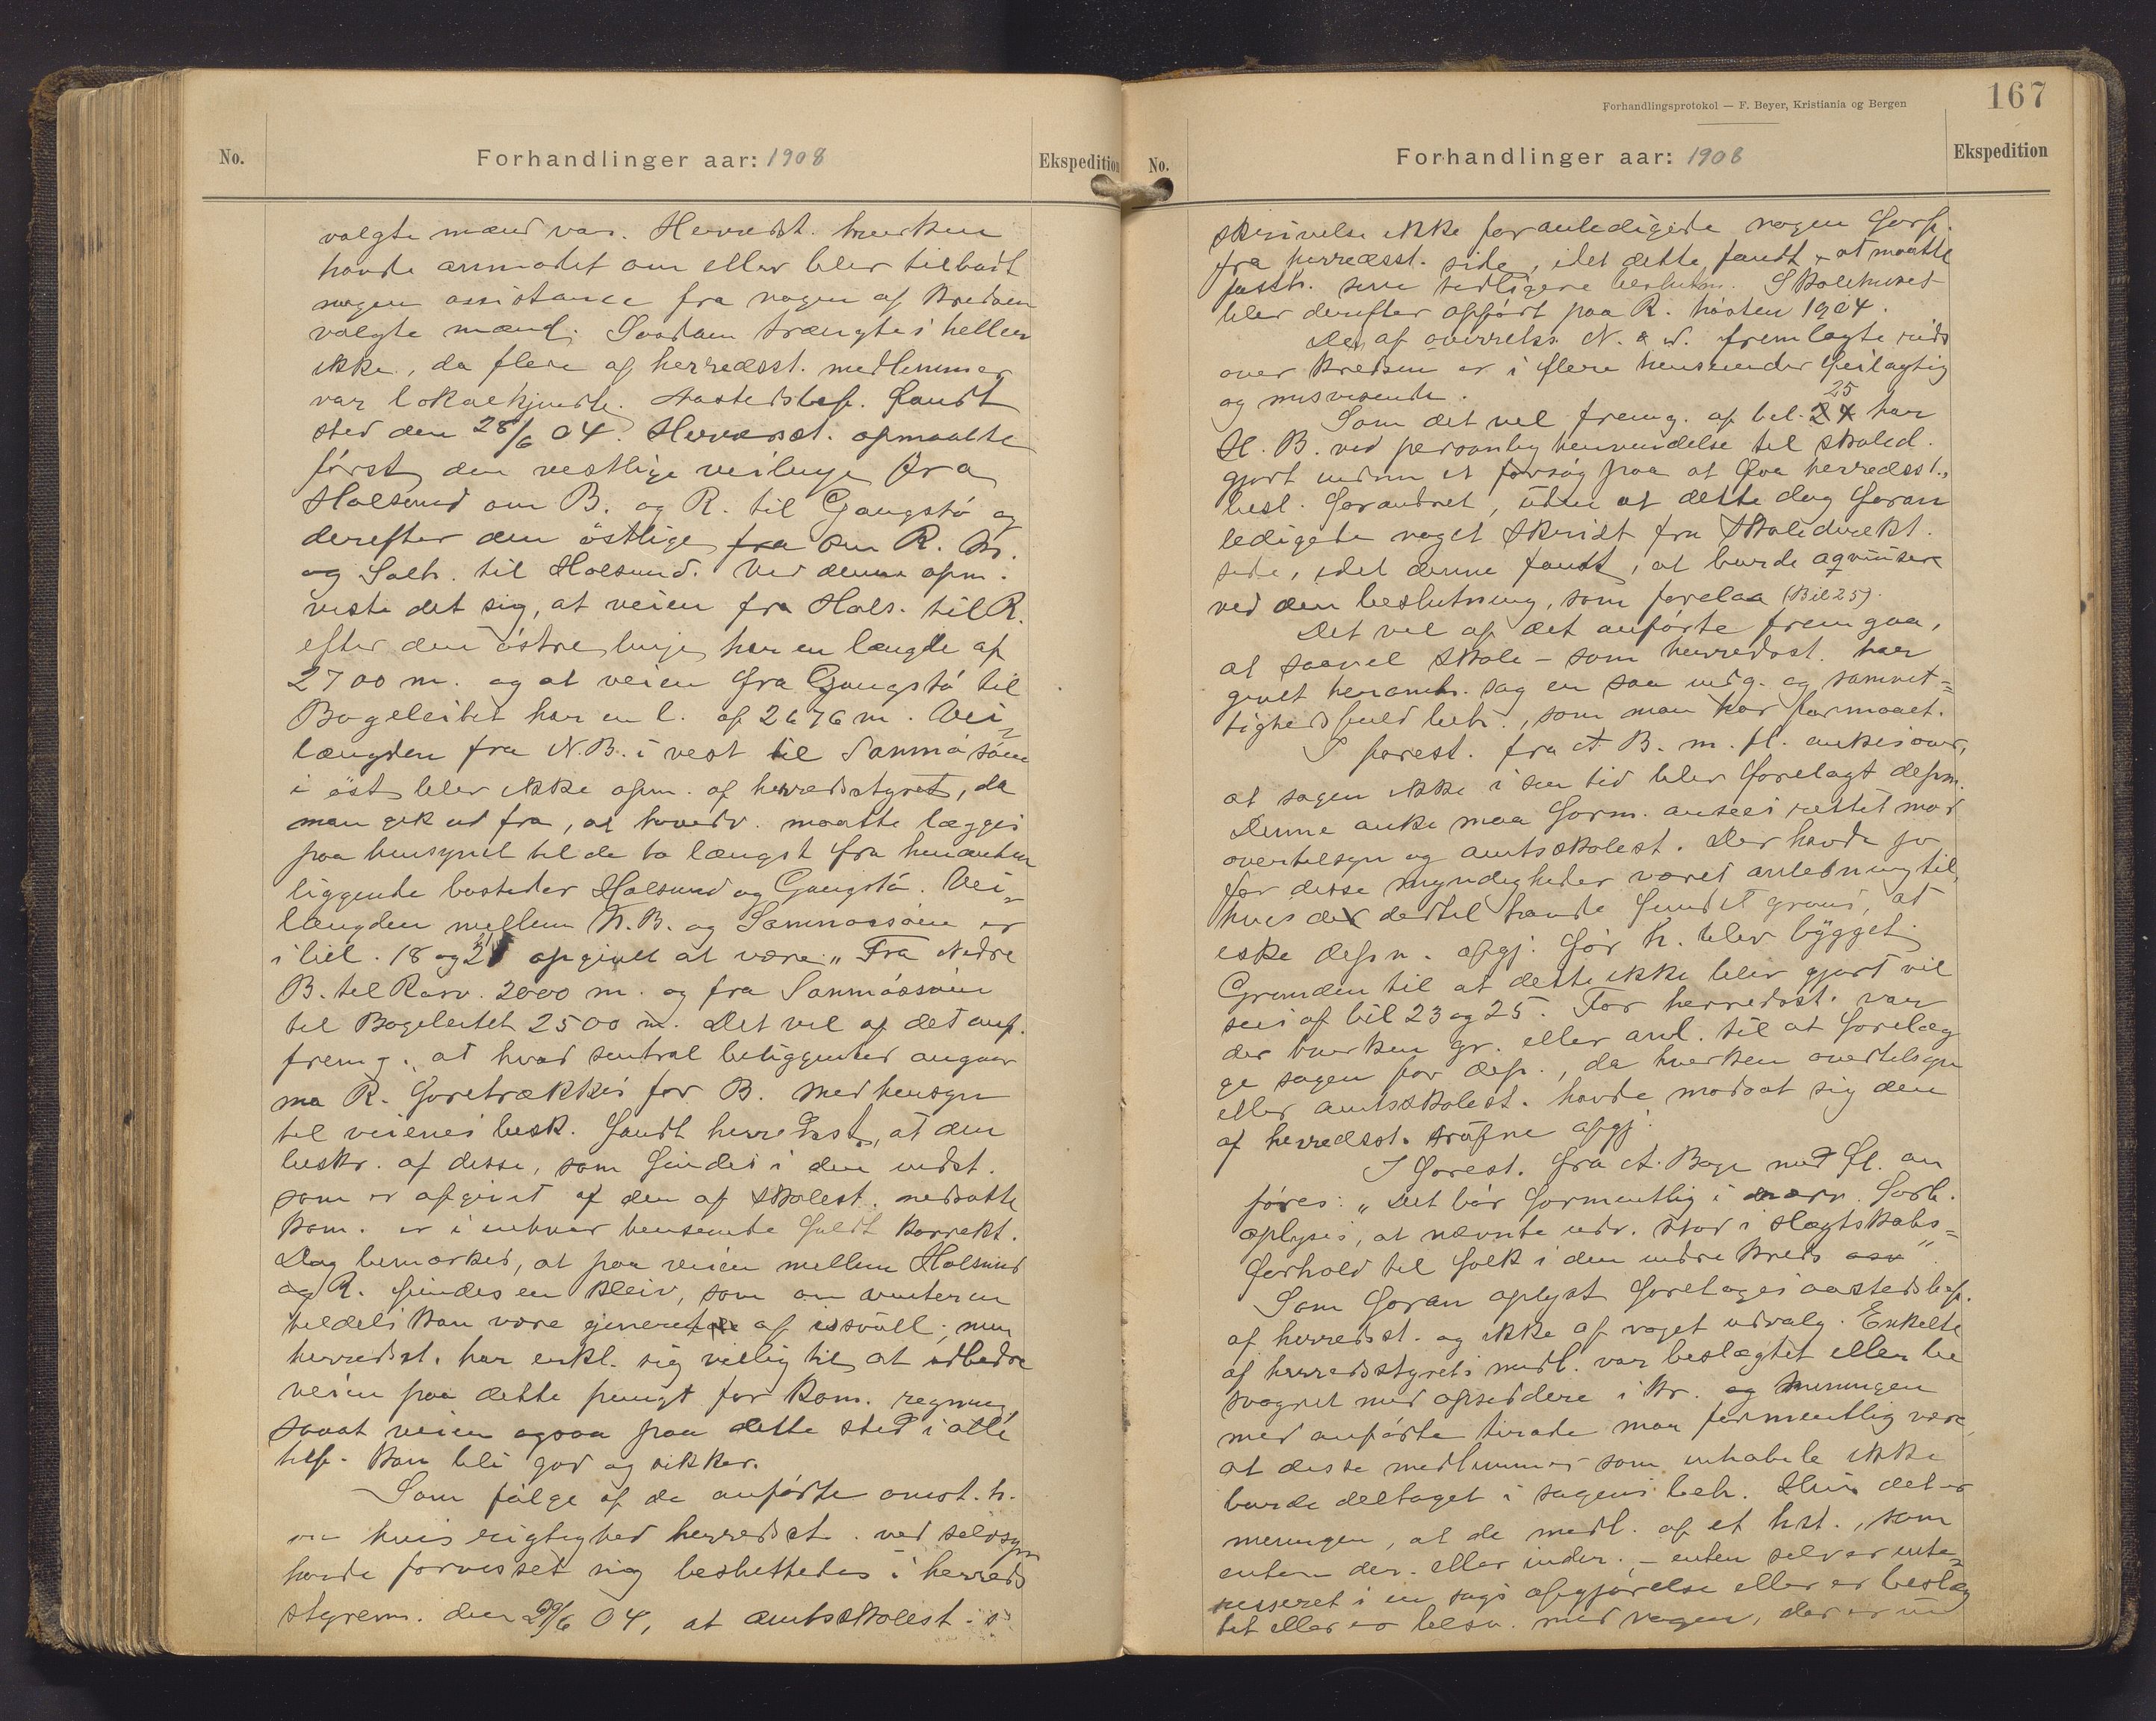 No.
Forhandlinger aar: 1908
Ekspedition
valgte mænd var. Herredst. hverken
havde anmodet om eller blev tilbudt
nogen assistance fra nogen af kredsen
valgte mænd. Saadan trængtes heller
ikke, da flere af herredsst. medlemmer
var lokalkjendte. Aastedsbef. fandt
sted den 28/6 04. Herredsst. opmaalte
först den vestlige veilinje fra
Holsund om B. og R. til Gangstö og
derefter den östlige fra om R. Br.
og Saltr. til Holsund. Ved denne opm.
viste det sig, at veien fra Hols. til R.
efter den östre linje har en længde af
2700 m. og at veien fra Gangstö til
Bogeleitet har en l. af 2676 m. Vei-
længden fra N.B. i vest til Sanmösöien
i öst blev ikke opm. af herredsstyret, da
man gik ud fra, at hovedv. maatte lægges
paa hensynet til de to længst fra hinanden
liggende bosteder Holsund og Gangstö. Vei-
længden mellem N.B. og Sanmossöien er
i bil. 18 og 21 opgivet at være: „Fra Nedre
B. til Rorv. 2000 m. og fra Sanmössöien
til Bogeleitet 2500 m. Det vil af det anf.
fremg., at hvad sentral beliggenhed angaar
ma R. foretrækkes for B. Med hensyn
til veienes besk. fandt herredsst., at den
beskr. af disse, som findes i den indst.
som er afgivet af den af skolest. nedsatte
kom. er i enhver henseende fuldt korrekt.
Dog bemærkes, at paa veien mellem Holsund
og R. findes en kleiv, som om vinteren
tildels kan være generet af issvull; men
herredsst. har erkl. sig villig til at udbedre
veien paa dette punkt for kom. regning,
saaat veien ogsaa paa dette sted i alle
tilf. kan bli god og sikker.
Som fölge af de anförte omst. h.
om hvis rigtighed herredsst. ved selvsyn
havde forvisset sig besluttedes i herreds
styrem. den 29/6 04, at amtsskolest. s
Forhandlingsprotokol — F. Beyer, Kristiania og Bergen
167
No.
Forhandlinger aar: 1908
Ekspedition
skrivelse ikke foranledigede nogen forf.
fra herredsst. side, idet dette fandt at maatte
fasth. sine tidligere beslutn. Skolehuset
blev derefter opfört paa R. hösten 1904.
Det af overretss. N. & W. fremlagte rids
over kredsen er i flere henseender feilagtig
og misvisende.
Som det vil fremg. af bil. 25 har
H. B. ved personlig henvendelse til skoled.
gjort endnu et forsög paa at faa herredsst.,
besl. forandret, uden at dette dog foran
ledigede noget skridt fra skoledirekt.
side, idet denne fandt, at burde aqviescere
ved den beslutning, som forelaa (Bil 25).
Det vil af det anförte fremgaa,
at saavel skole- som herredsst. har
givet heromh. sag en saa indg. og samvit-
tighedsfuld beh., som man har formaaet.
I forest. fra A. B. m. fl. ankes over,
at sagen ikke i sin tid blev forelagt depm.
Denne anke maa form. ansees rettet mod
overtilsyn og amtsskolest. Der havde jo
for disse myndigheder været anledning til,
hvis de dertil havde fundet grund, at
eske depm. afgj. för h. blev bygget.
Grunden til at dette ikke blev gjort vil
sees af bil 23 og 25. For herredsst. var
der hverken gr. eller anl. til at forelæg
ge sagen for dep., da hverken overtilsyn
eller amtsskolest. havde modsat sig den
af herredsst. trufne afgj.
I forest. fra A. Boge med fl. an
föres: „Det bör formentlig i nærv. forb.
oplyses, at nævnte udv. stod i slægtskabs-
forhold til folk i den indre kreds osv".
Som foran oplyst foretoges aastedsbef.
af herredsst. og ikke af noget udvalg. Enkelte
af herredsstyrets medl. var beslægtet eller be
svogret med opsiddere i kr. og meningen
med anförte tirade maa formentlig være
at disse medlemmer som inhabile ikke
burde deltaget i sagens beh. Hvis det er
meningen, at de medl. af et hst., som
enten der. eller inder. – enten selv er inte-
resseret i en sags afgjörelse eller er beslæg
tet eller er besv. med nogen, der er in